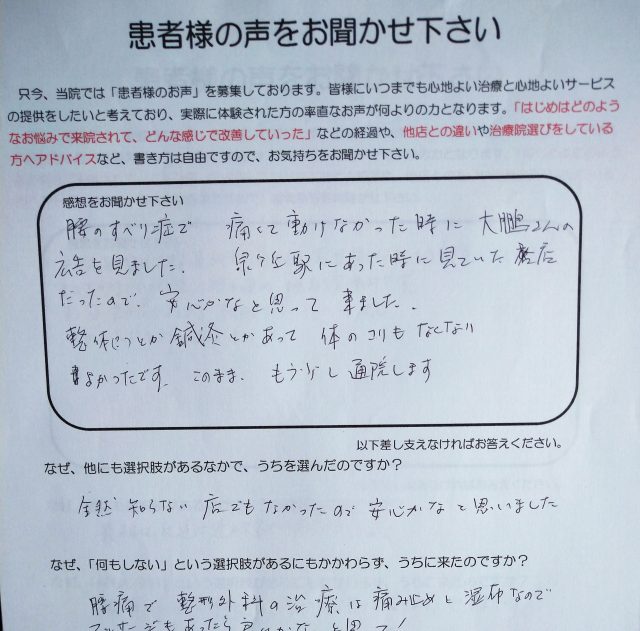 患者様の声をお聞かせ下さい
只今、当院では「患者様のお声」を募集しております。皆様にいつまでも心地よい治療と心地よいサービス
の提供をしたいと考えており、実際に体験された方の率直なお声が何よりの力となります。「はじめはどのよう
なお悩みで来院されて、どんな感じで改善していった」などの経過や、他店との違いや治療院選びをしている
方へアドバイスなど、書き方は自由ですので、お気持ちをお聞かせ下さい。
感想をお聞かせ下さい
腰のすべり症で 痛くて動けなかった時に 大鵬さんの
広告を見ました. 泉ヶ丘駅にあった時に見ていた お店
だったので、安心かなと思って 来ました.
整体とか鍼灸とかあって 体のコリもなくなり
よかったです. このまま. もう少し通院します
以下差し支えなければお答えください。
なぜ、他にも選択肢があるなかで、うちを選んだのですか？
全然 知らない 店でもなかったので 安心かな と思いました
なぜ、「何もしない」という選択肢があるにもかかわらず、うちに来たのですか？
腰痛で 整形外科の治療は痛み止めと湿布なので